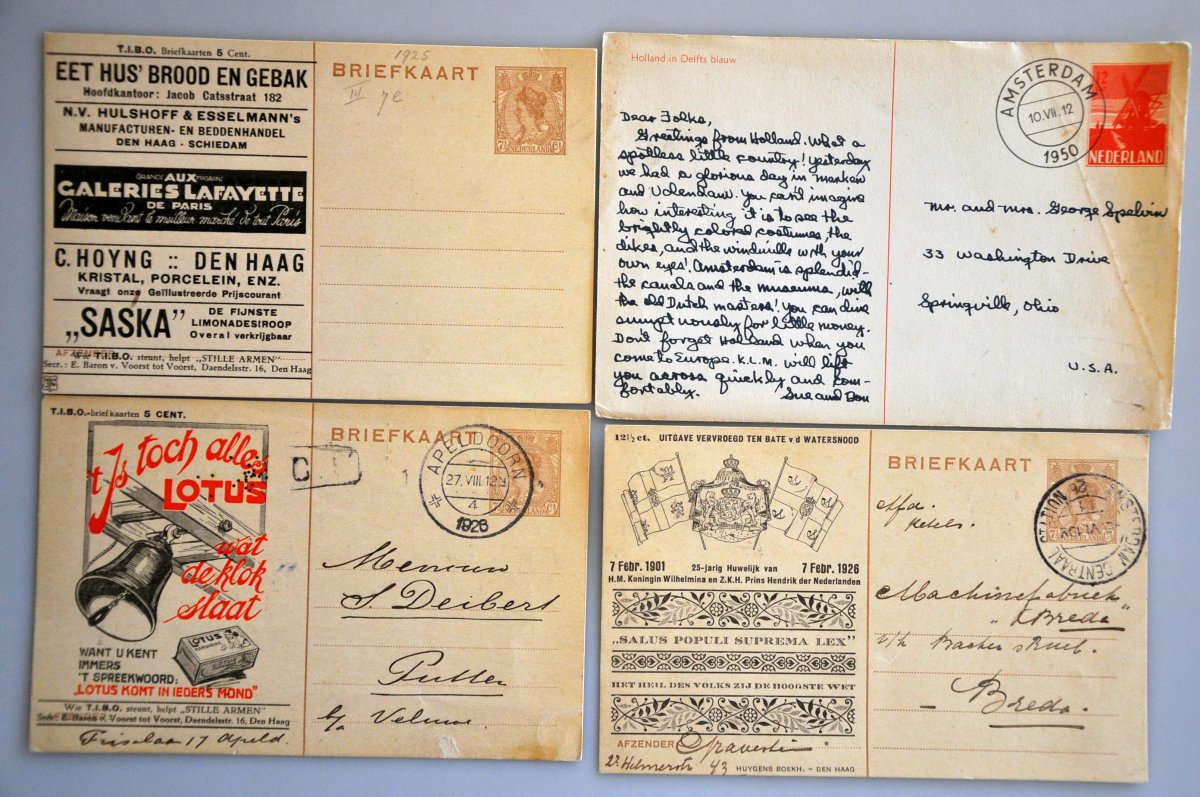 T.I.B.O. Briefkaarten 5 Cent.
EET HUS' BROOD EN GEBAK
Hoofdkantoor: Jacob Catsstraat 182
N.V. HULSHOFF & ESSELMANN's
MANUFACTUREN- EN BEDDENHANDEL
DEN HAAG - SCHIEDAM
GRANDS AUX MAGASINS
GALERIES LAFAYETTE
DE PARIS
Maison vendant le meilleur marché de tout Paris
C. HOYNG :: DEN HAAG
KRISTAL, PORCELEIN, ENZ.
Vraagt onze Geïllustreerde Prijscourant
„SASKA"
DE FIJNSTE
LIMONADESIROOP
Overal verkrijgbaar
AFZENDER
Wie T.I.B.O. steunt, helpt „STILLE ARMEN"
Secr.: E. Baron v. Voorst tot Voorst, Daendelsstr. 16, Den Haag
1925
BRIEFKAART
III 7e
7½ Ct
NEDERLAND
Holland in Delfts blauw
Dear Folks,
Greetings from Holland. What a
spotless little country! Yesterday
we had a glorious day in Marken
and Volendam. You can't imagine
how interesting it is to see the
brightly colored costumes, the
dikes, and the windmills with your
own eyes! Amsterdam is splendid-
the canals and the museums, with
the old Dutch masters! You can dine
sumptuously for little money.
Don't forget Holland when you
come to Europe. K.L.M. will lift
you across quickly and com-
fortably.
Sue and Don
AMSTERDAM
10.VII.12
1950
12
NEDERLAND
Mr. and Mrs. George Spelvin
33 Washington Drive
Springville, Ohio
U.S.A.
T.I.B.O.-briefkaarten 5 CENT.
't Is toch alles
LOTUS
wat
de klok
slaat
LOTUS
WANT U KENT
IMMERS
'T SPREEKWOORD:
„LOTUS KOMT IN IEDERS MOND"
Wie T.I.B.O. steunt, helpt „STILLE ARMEN"
Secr.: E. Baron v. Voorst tot Voorst, Daendelsstr. 16, Den Haag
17 Apeld.
BRIEFKAART
APELDOORN
27.VIII.12N
4
1926
Mevrouw
S. Deibert
Putten
Veluwe
12½ ct. UITGAVE VERVROEGD TEN BATE v/d WATERSNOOD
7 Febr. 1901 25-jarig Huwelijk van 7 Febr. 1926
H.M. Koningin Wilhelmina en Z.K.H. Prins Hendrik der Nederlanden
„SALUS POPULI SUPREMA LEX"
HET HEIL DES VOLKS ZIJ DE HOOGSTE WET
AFZENDER
2e Helmerstr 43
HUYGENS BOEKH. - DEN HAAG
BRIEFKAART
AMSTERDAM CENTRAAL STATION
NEDERLAND
Afd.
Ketels.
Machinefabriek
„Breda"
v/h Backer & Rueb.
Breda.